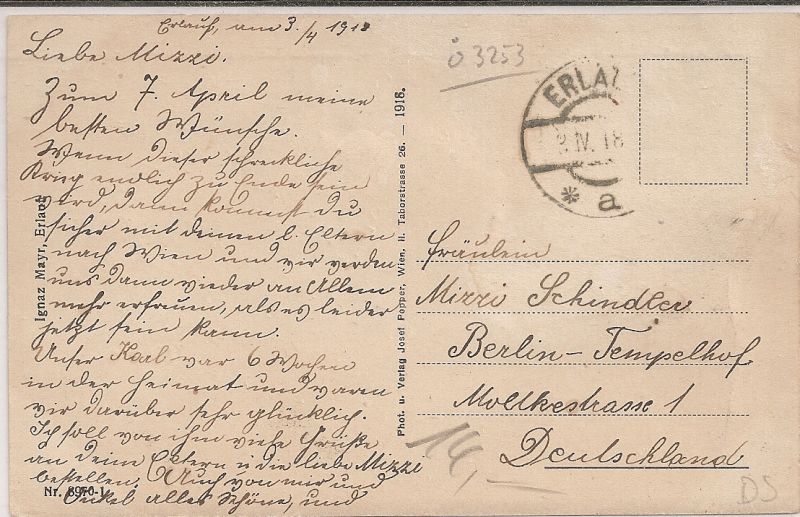 Erlauf, am 3./4 1918
Liebe Mizzi.
Zum 7. April meine
besten Wünsche.
Wenn dieser schreckliche
Krieg endlich zu Ende sein
wird, dann kommst du
sicher mit deinen l. Eltern
nach Wien und wir werden
uns dann wieder an Allem
mehr erfreuen, als es leider
jetzt sein kann.
Unser Karl war 6 Wochen
in der Heimat und waren
wir darüber sehr glücklich.
Ich soll von ihm viele Grüße
an deine Eltern u die liebe Mizzi
bestellen. Auch von mir und
Onkel alles Schöne, und
Nr. 8970-1
Ignaz Mayr, Erlauf
Phot. u. Verlag Josef Popper, Wien, II. Taborstrasse 26. — 1916.
ö 3253
ERLA
3.IV.18
* a
Fräulein
Mizzi Schindler
Berlin-Tempelhof
Moltkestrasse 1
Deutschland
14,—
DS